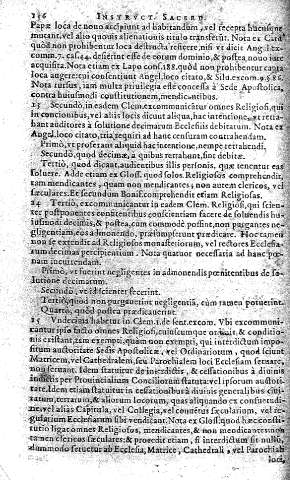 256 INSTRVCT. SACERD.
Papæ loca de nouo accipiunt ad habitandum, vel recepta hucusque
mutant, vel alio quouis alienationis titulo transferūt. Nota ex Card.
quod non prohibentur loca destructa reficere, nisi vt dicit Angel.ex-
comm.7.cas.44. desierit esse de eorum dominio, & postea, nouo iure
acquisita. Nota etiam ex Lapo conf.188. quod non prohibentur capta
loca augere: et consentiunt Angel. loco citato, & Silu.excom.9.§.86.
Nota rursus, iam multa priuilegia esse concessa à Sede Apostolica,
contra huiusmodi constitutionem, mendicantibus.
23 Secundò, in eadem Clem. excommunicātur omnes Religiosi, qui
in concionibus, vel alijs locis dicunt aliqua, hac intentione, vt retra-
hant auditores à solutione decimarum Ecclesijs debitarum. Nota ex
Angel. loco citato, tria requiri ad hanc censuram contrahendam.
Primò, vt proferant aliquid hac intentione, nempe retrahendi.
Secundò, quod decimæ, à quibus retrahant, sint debitæ.
Tertiò, quod dicant audientibus illis personis, quæ tenentur eas
soluere. Adde etiam ex Gloss. quod solos Religiosos comprehendit,
tam mendicantes, quam non mendicantes; non autem clericos, vel
seculares. Et secundum Bonif. comprehendit etiam Religiosas.
24 Tertiò, excommunicantur in eadem Clem. Religiosi, qui scien-
ter postponentes confitentibus conscientiam facere de soluendis hu-
iusmodi decimis, & postea, cum commode possint, non purgantes ne-
gligentiam, eos admonendo, præsumpserint prædicare. Hoc tamen
non se extendit ad Religiosos monasteriorum, vel rectores Ecclesia-
rum decimas percipientium. Nota quatuor necessaria ad hanc pœ-
nam incurrendam.
Primò, vt fuerint negligentes in admonendis pœnitentibus de so-
lutione decimarum.
Secundò, vt id scienter fecerint.
Tertiò, quod non purgauerint negligentiā, cum tamen potuerint.
Quartò, quòd postea prædicauerint.
25 Vndecima habetur in Clem.1.de sent.excom. Vbi excommuni-
cantur ipso facto omnes Religiosi, cuiuscumque ordinis, & conditio-
nis existant, tam exempti, quam non exempti, qui interdictum impos-
itum auctoritate Sedis Apostolicæ, vel Ordinariorum, quod sciunt
Matricem, vel Cathedralem, seu Parochialem loci Ecclesiam seruare,
non seruant. Idem statuitur de interdictis, & cessationibus à diuinis
indictis per Prouincialium Conciliorum statuta: vel ipsorum auctori-
tate. Idem etiam statuitur in cessationibus à diuinis generalibus ciui-
tatum, terrarum, & aliorum locorum, quas aliquando ex consuetudi-
ne, vel alias Capitula, vel Collegia, vel conuentus sæcularium, vel re-
gularium Ecclesiarum sibi vendicant. Nota ex Gloss. quod hæc consti-
tutio ligat omnes Religiosos, mendicantes, & non mendicantes: non
tamen clericos sæculares: & procedit etiam, si interdictum sit nullū,
dummodo seruetur ab Ecclesia, Matrice, Cathedrali, vel Parochiali
loci,